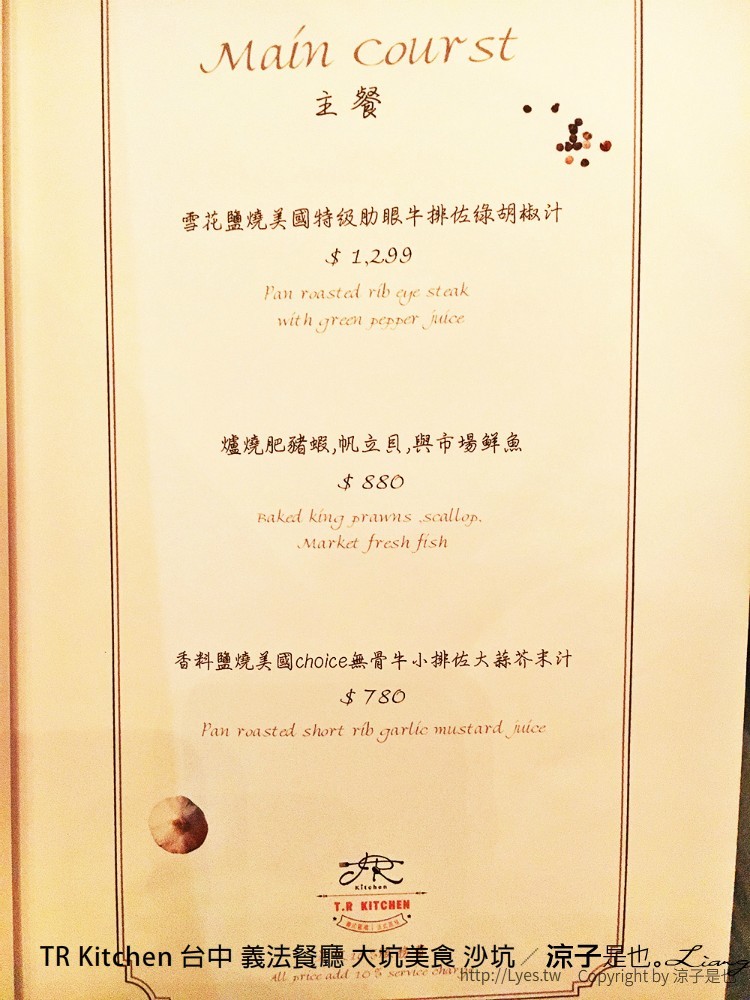 Main Courst
主餐
雪花鹽燒美國特级肋眼牛排佐綠胡椒汁
$ 1,299
Pan roasted rib eye steak
with green pepper juice
爐燒肥豬蝦,帆立貝,與市場鮮魚
$ 880
Baked king prawns scallop.
Market fresh fish
香料鹽燒美國choice無骨牛小排佐大蒜芥末汁
$ 780
Pan roasted short rib garlic mustard juice
TR
Kitchen
T.R KITCHEN
TR Kitchen 台中 義法餐廳 大坑美食 沙坑 / 涼子是也。Liang
All price add 10% service char
http://Lyes.tw Copyright by 涼子是也